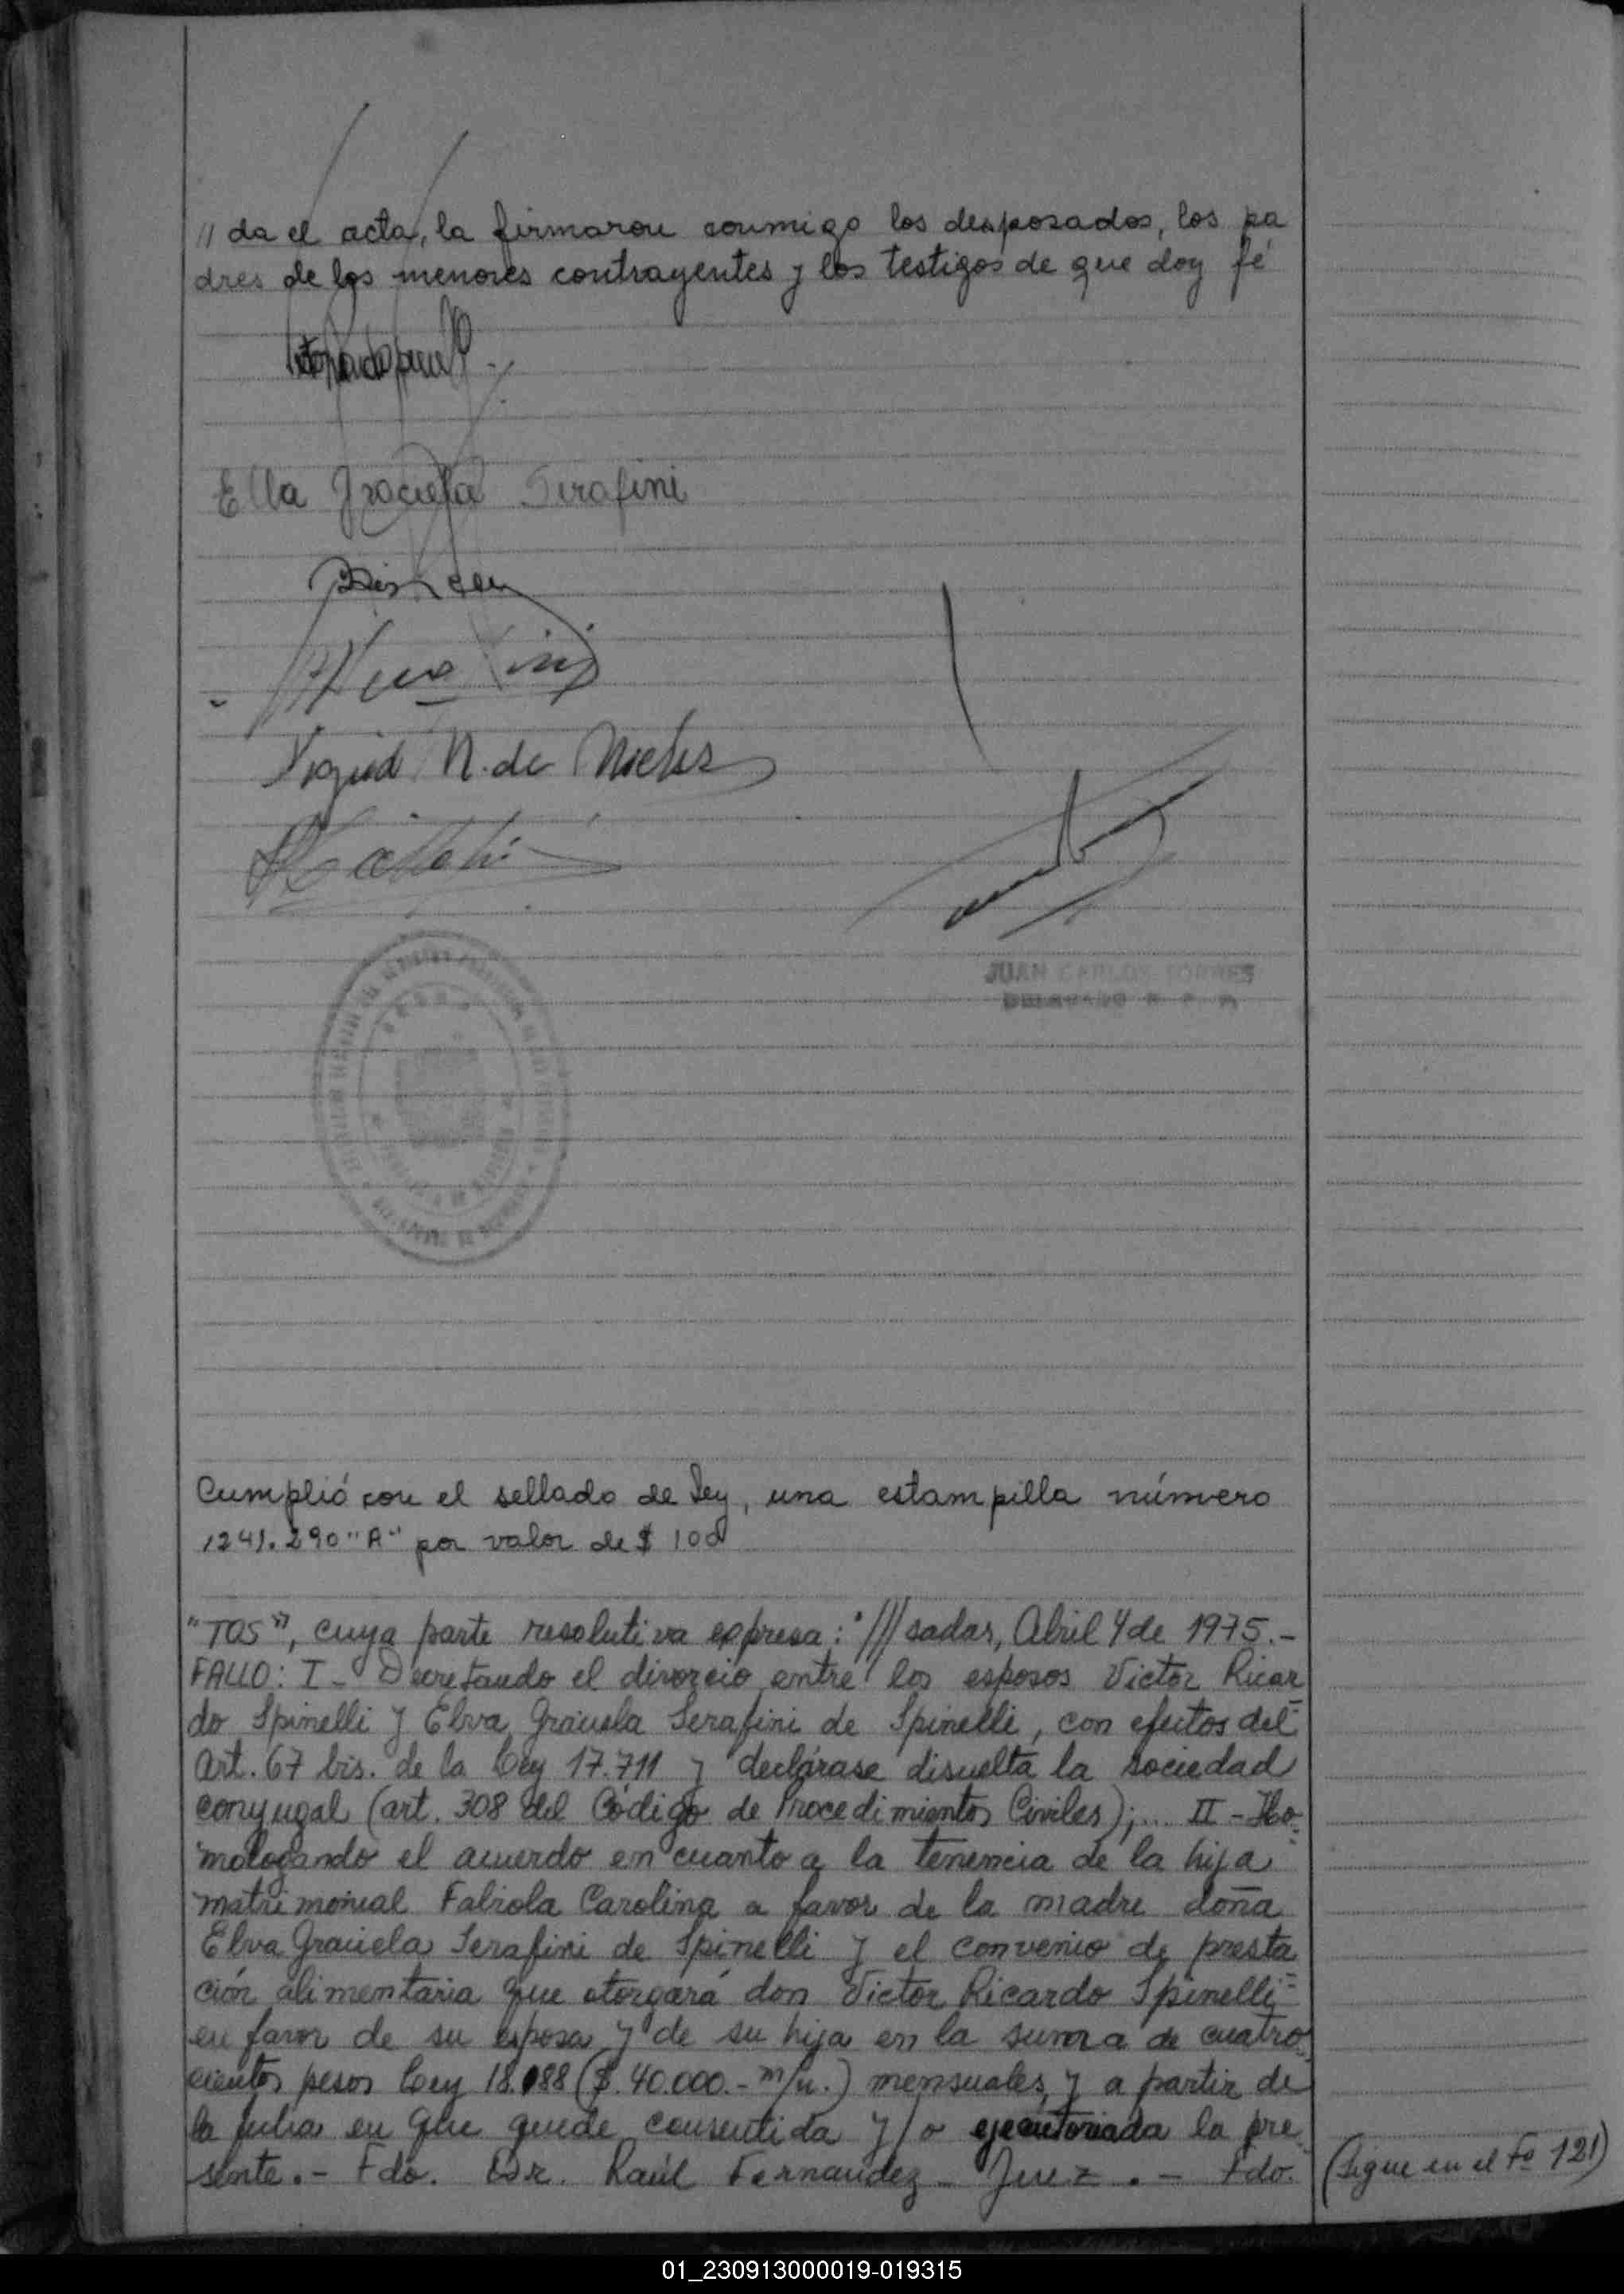 // da el acta, la firmaron conmigo los desposados, los pa
dres de los menores contrayentes y los testigos de que doy fé
Elva Graciela Serafini
N. de
JUAN CARLOS TORRES
DELEGADO R. P. P.
Cumplió con el sellado de Ley, una estampilla número
1241.290 "A" por valor de $ 100
"TOS", cuya parte resolutiva expresa: "///sadas, Abril 4 de 1975.-
FALLO: I - Decretando el divorcio entre los esposos Victor Ricar
do Spinelli y Elva Graciela Serafini de Spinelli, con efectos del
art. 67 bis. de la Ley 17.711 y declárase disuelta la sociedad
conyugal (art. 308 del Código de Procedimientos Civiles);... II - Ho-
mologando el acuerdo en cuanto a la tenencia de la hija
matrimonial Fabiola Carolina a favor de la madre doña
Elva Graciela Serafini de Spinelli y el convenio de presta
ción alimentaria que otorgará don Victor Ricardo Spinelli
en favor de su esposa y de su hija en la suma de cuatro
cientos pesos Ley 18.188 ($. 40.000.- m/n.) mensuales, y a partir de
la fecha en que quede consentida y/o ejecutoriada la pre
sente.- Fdo. Dr. Raúl Fernandez - Juez .- Fdo.
(Sigue en el Fº 121)
01_230913000019-019315